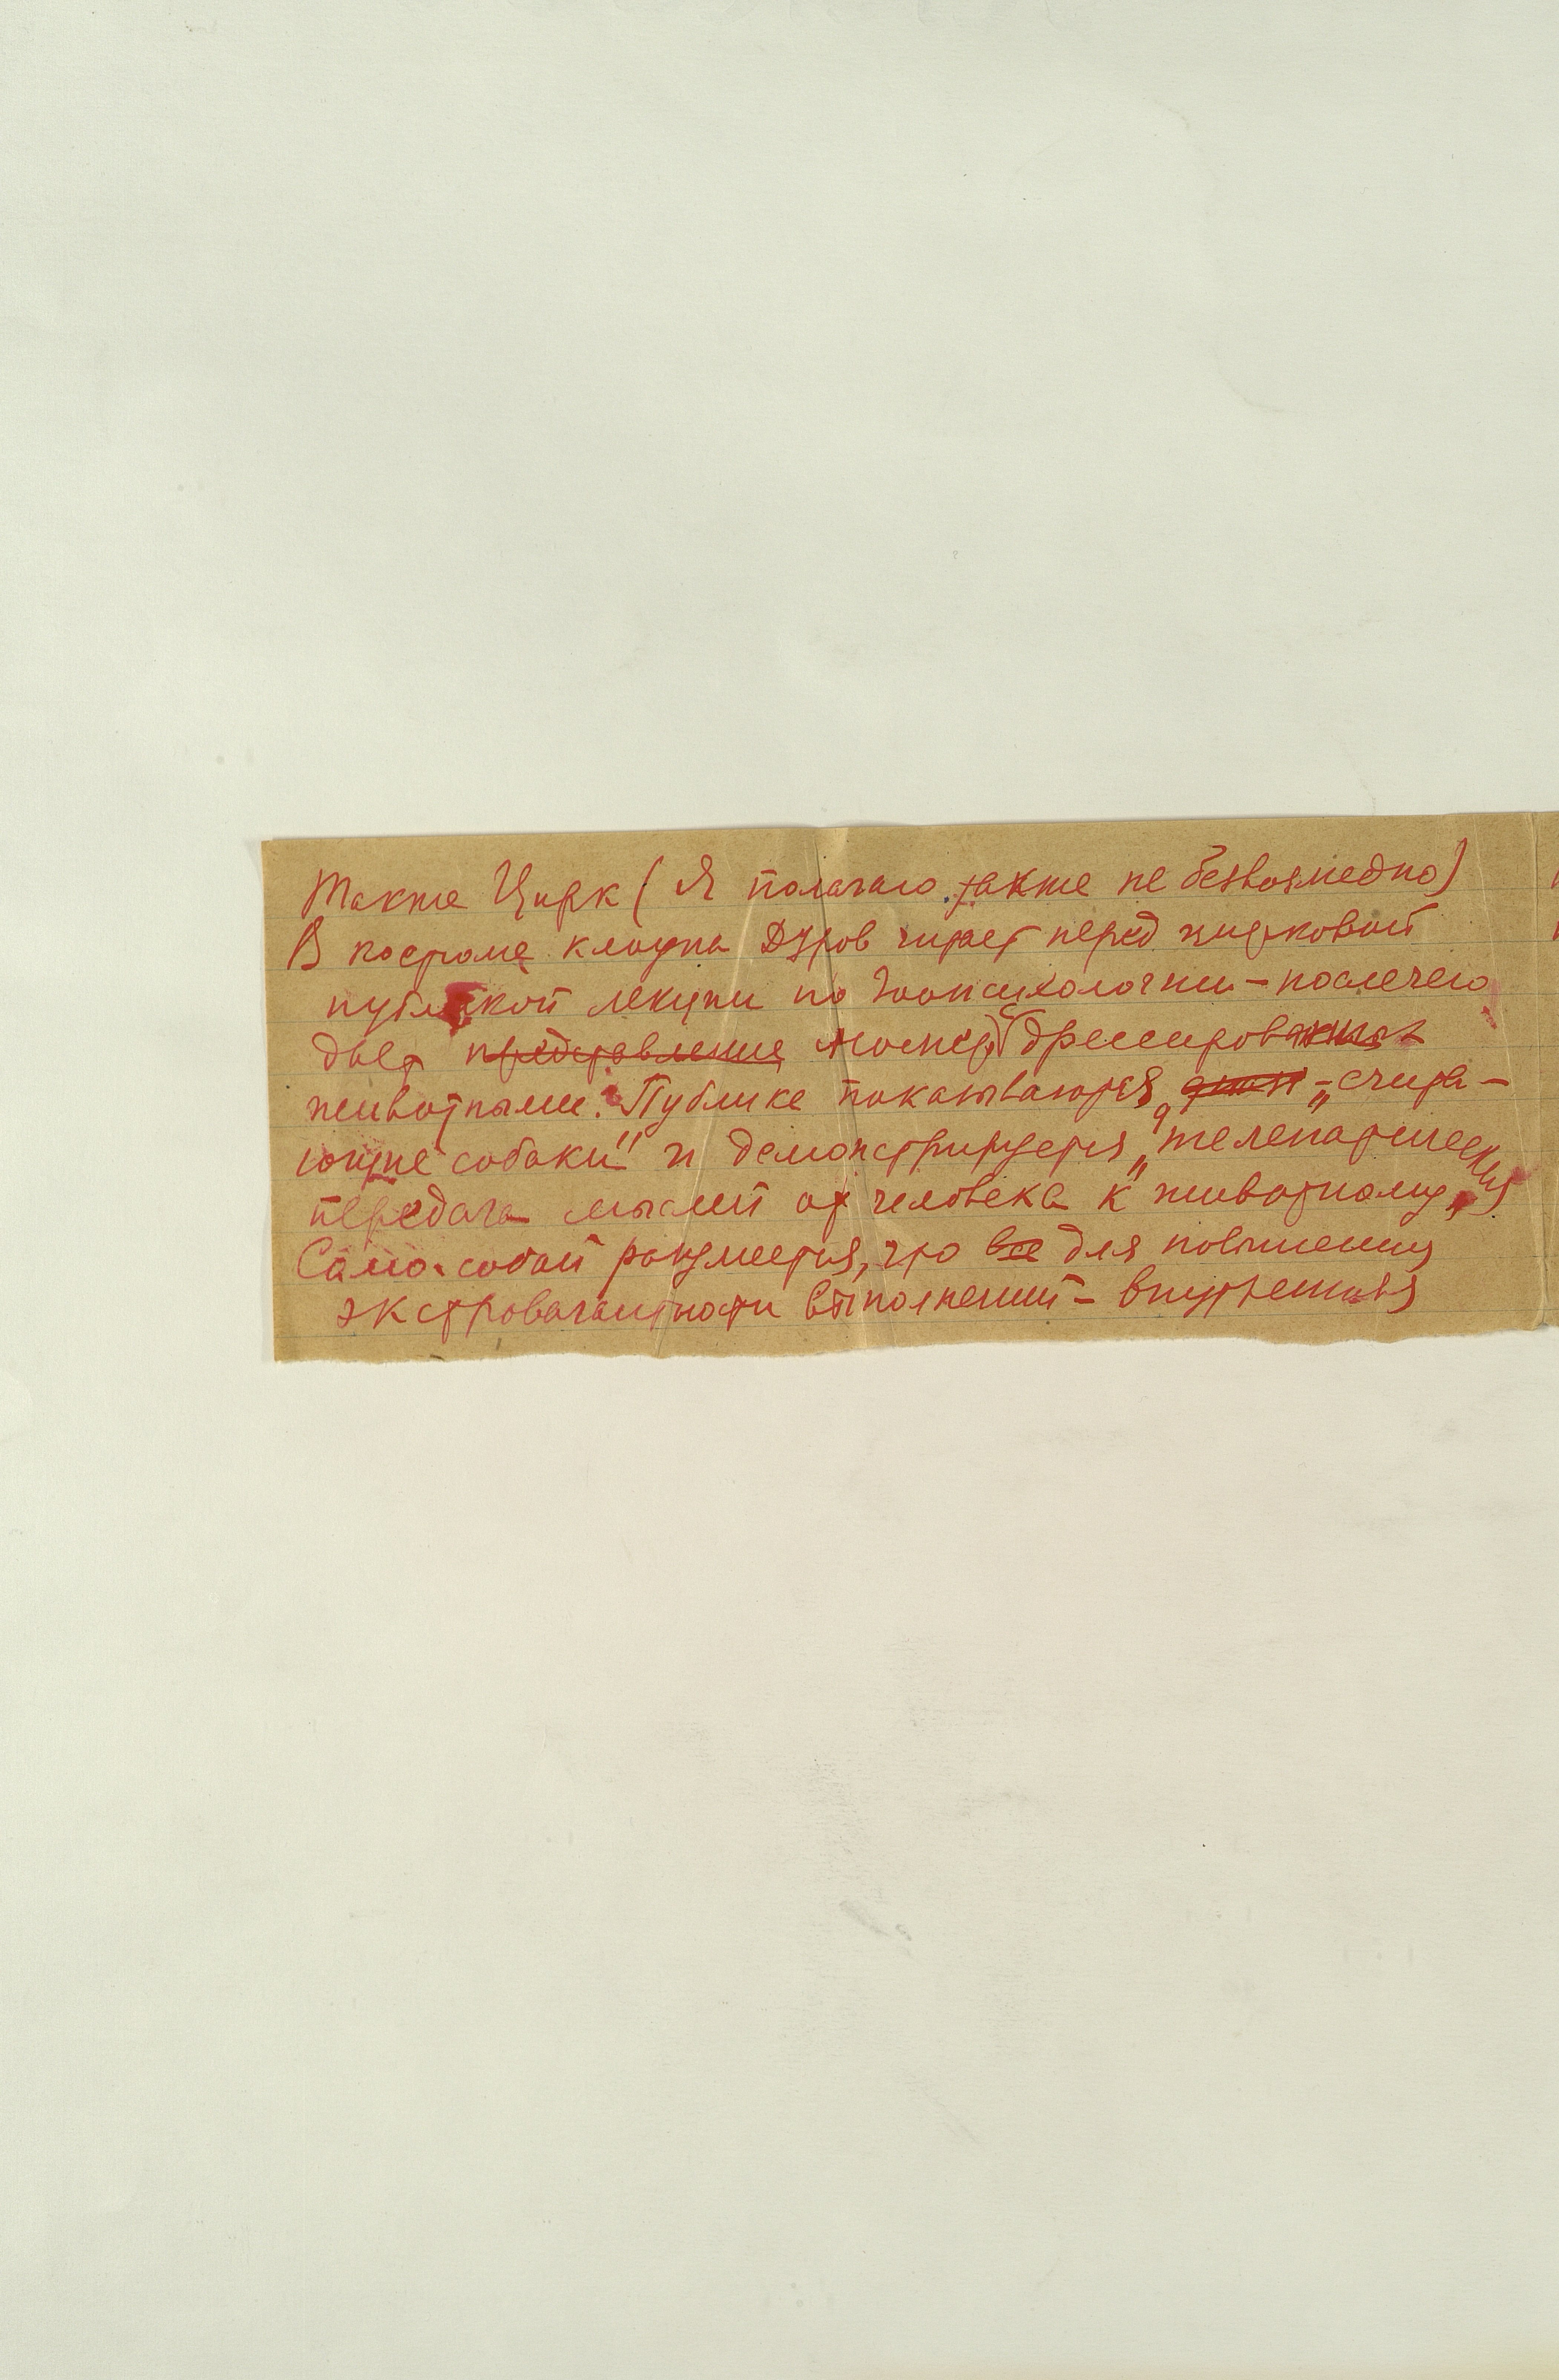 Также Цирк (Я полагаю также не безвозмедно)
В костюме клоуна Дуров читает перед цирковой
публикой лекции по Зоопсихологии – послечего
дает представление номер с дрессированных
животными. Публике показываются – „счита-
ющие собаки" и демонстрируется „телепатическая
передача мыслей от человека к животному"
Само-собой разумеется, что все для повышения
экстровагантности выполнений – внутренняя